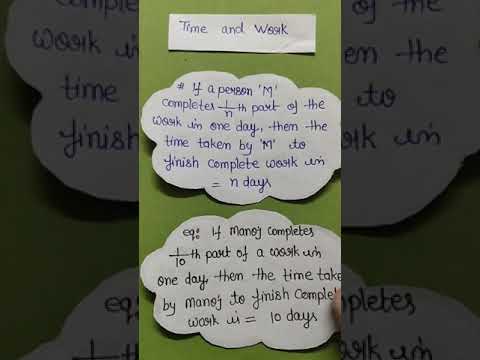 Time and Work
# If a person 'M'
completes 1/n th part of the
work in one day, then the
time taken by 'M' to
finish complete work in
= n days
eg: If Manoj completes
1/10 th part of a work in
one day, then the time take
by Manoj to finish Complet
work is = 10 days